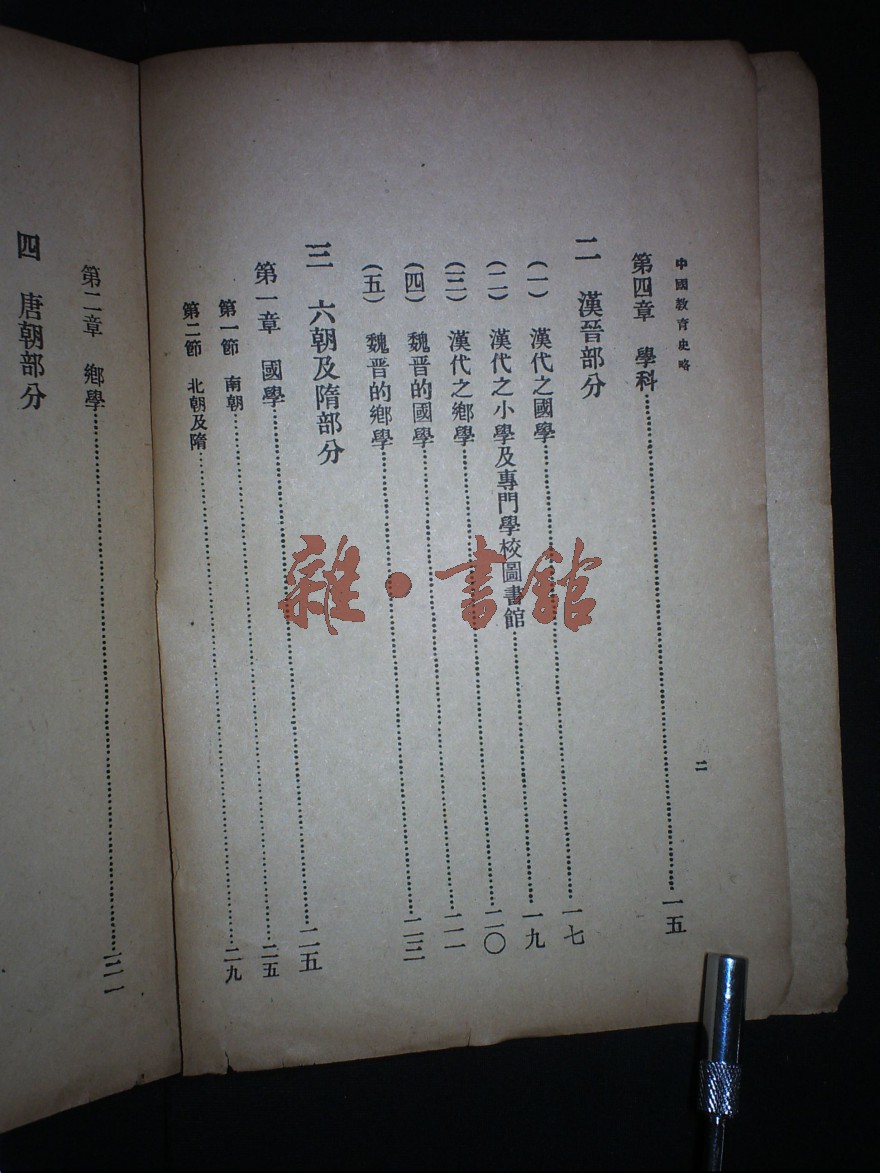 中國教育史略
二
第四章 學科……一五
二 漢晉部分
(一) 漢代之國學……一七
(二) 漢代之小學及專門學校圖書館……一九
(三) 漢代之鄉學……二〇
(四) 魏晉的國學……二一
(五) 魏晉的鄉學……二三
三 六朝及隋部分
第一章 國學……二五
第一節 南朝……二五
第二節 北朝及隋……二九
第二章 鄉學……三一
四 唐朝部分
雜·書館